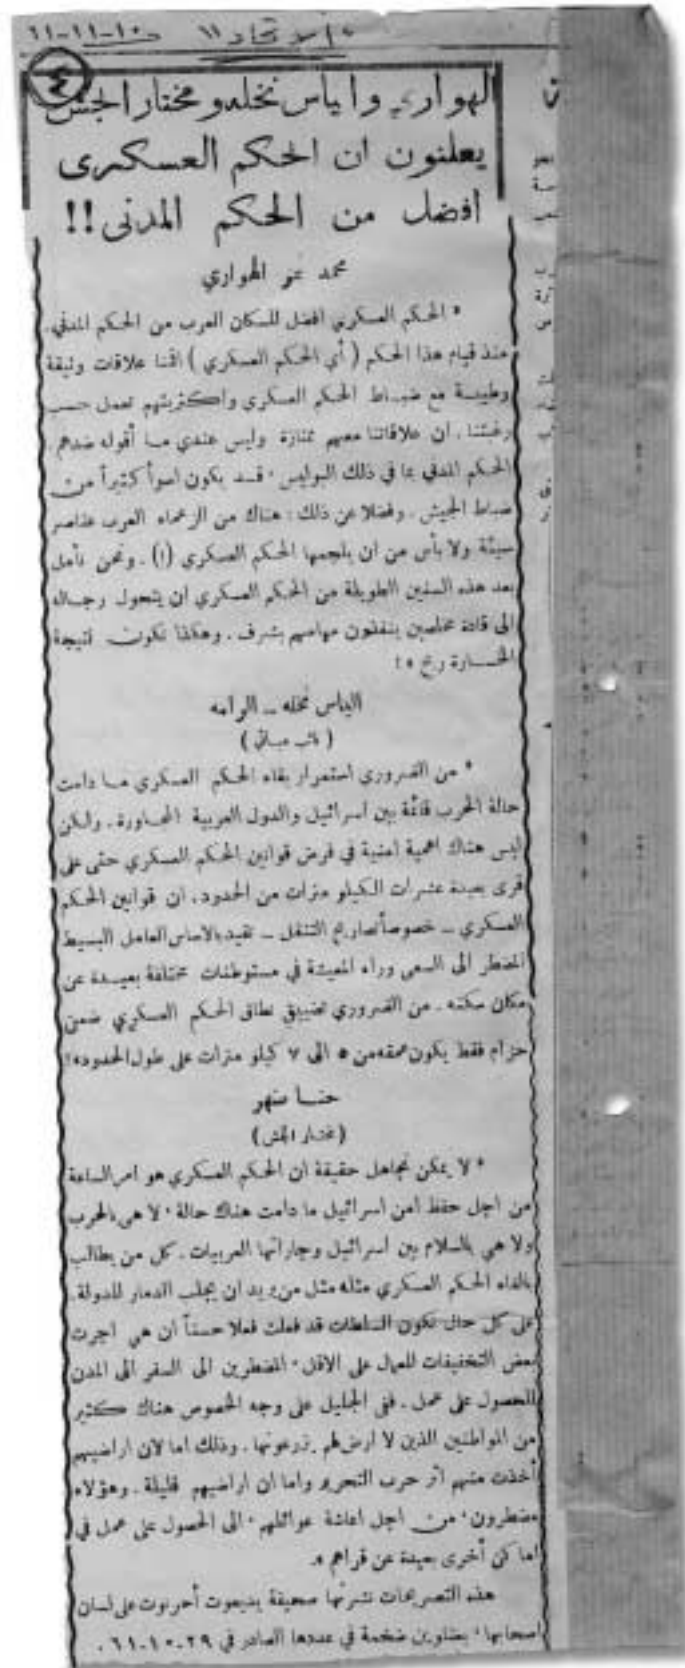 "الاتحاد" ١٠-١١-٦١
٤
الهواري واياس نخله ومختار الجش
يعلنون ان الحكم العسكرى
افضل من الحكم المدنى !!
محمد نمر الهواري
" الحكم العسكري افضل للسكان العرب من الحكم المدني.
منذ قيام هذا الحكم ( أي الحكم العسكري ) اقمنا علاقات وثيقة
وطيدة مع ضباط الحكم العسكري واكثريتهم تعمل حسب
رغبتنا . ان علاقاتنا معهم ممتازة وليس عندي ما أقوله ضدهم.
الحكم المدني بما في ذلك البوليس ، قد يكون اسوأ كثيراً من
ضباط الجيش . وفضلا عن ذلك : هناك من الزعماء العرب عناصر
سيئة ولا بأس من ان يلجمها الحكم العسكري (!) . ونحن نأمل
بعد هذه السنين الطويلة من الحكم العسكري ان يتحول رجاله
الى قادة مخلصين ينفذون مهامهم بشرف . وهكذا تكون نتيجة
الخسارة ربح " !
الياس نخله ــ الرامه
( نائب مباي )
" من الضروري استمرار بقاء الحكم العسكري ما دامت
حالة الحرب قائمة بين اسرائيل والدول العربية المجاورة . ولكن
ليس هناك اهمية امنية في فرض قوانين الحكم العسكري حتى على
قرى بعيدة عشرات الكيلو مترات من الحدود . ان قوانين الحكم
العسكري ــ خصوصاً تصاريح التنقل ــ تقيد بالاساس العامل البسيط
المضطر الى السعي وراء المعيشة في مستوطنات مختلفة بعيدة عن
مكان سكنه . من الضروري تضييق نطاق الحكم العسكري ضمن
حزام فقط يكون عمقه من ٥ الى ٧ كيلو مترات على طول الحدود " !
حنا
(مختار الجش)
" لا يمكن تجاهل حقيقة ان الحكم العسكري هو امر الساعة
من اجل حفظ امن اسرائيل ما دامت هناك حالة ، لا هي بالحرب
ولا هي بالسلام بين اسرائيل وجاراتها العربيات . كل من يطالب
بالغاء الحكم العسكري مثله مثل من يريد ان يجلب الدمار للدولة.
على كل حال تكون السلطات قد فعلت فعلا حسناً ان هي اجرت
بعض التخفيفات للعمال على الاقل ، المضطرين الى السفر الى المدن
للحصول على عمل . ففي الجليل على وجه الخصوص هناك كثير
من المواطنين الذين لا ارض لهم يزرعونها . وذلك اما لان اراضيهم
أخذت منهم اثر حرب التحرير واما ان اراضيهم قليلة . وهؤلاء
مضطرون ، من اجل اعاشة عوائلهم ، الى الحصول على عمل في
اماكن أخرى بعيدة عن قراهم ".
هذه التصريحات نشرتها صحيفة يديعوت أحرنوت على لسان
اصحابها ، بعناوين ضخمة في عددها الصادر في ٢٩-١٠-٦١ .